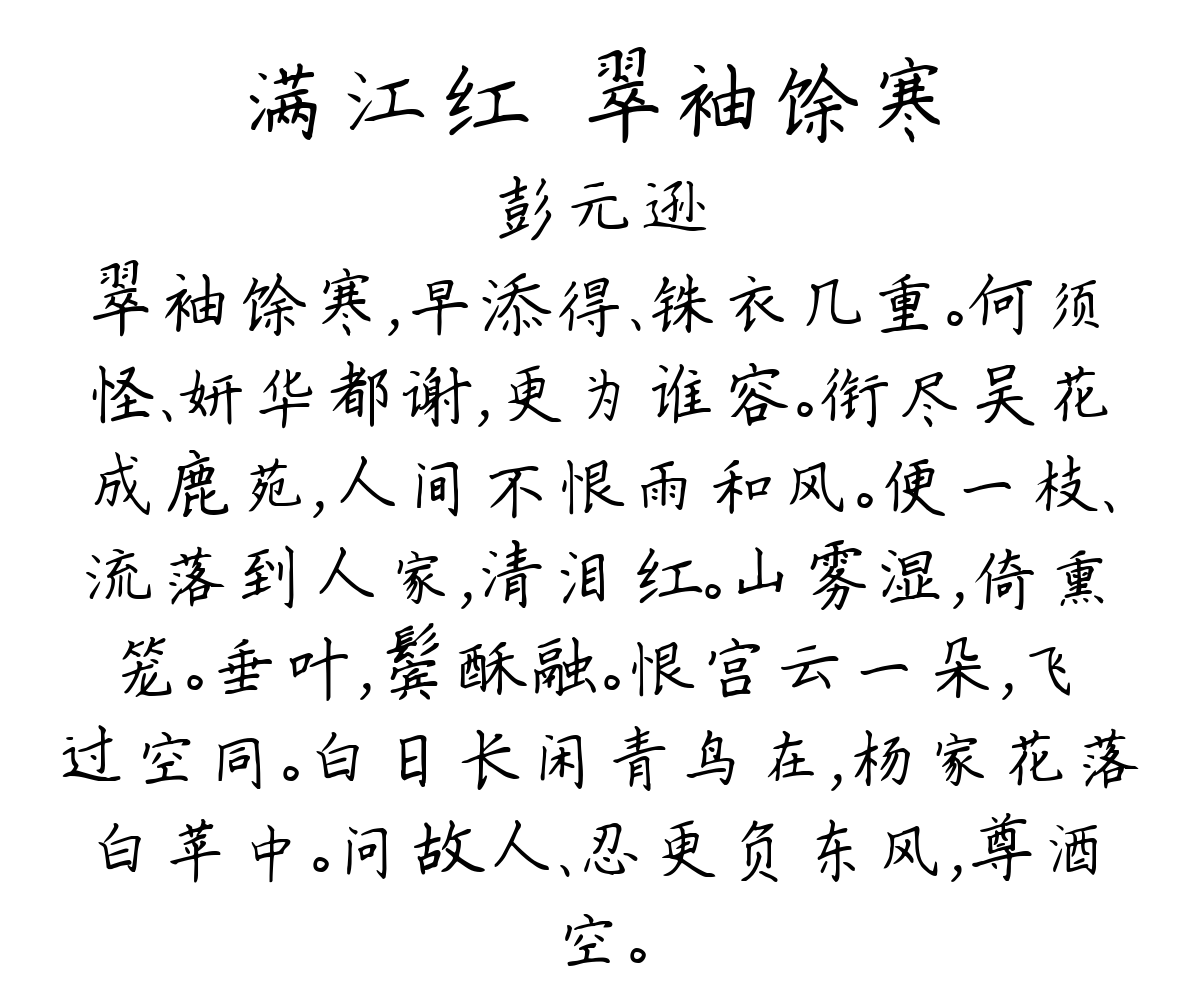 满江红 翠袖馀寒
彭元逊
翠袖馀寒,早添得、铢衣几重。何须
怪、妍华都谢,更为谁容。衔尽吴花
成鹿苑,人间不恨雨和风。便一枝、
流落到人家,清泪红。山雾湿,倚熏
笼。垂叶,鬓酥融。恨宫云一朵,飞
过空同。白日长闲青鸟在,杨家花落
白苹中。问故人、忍更负东风,尊酒
空。